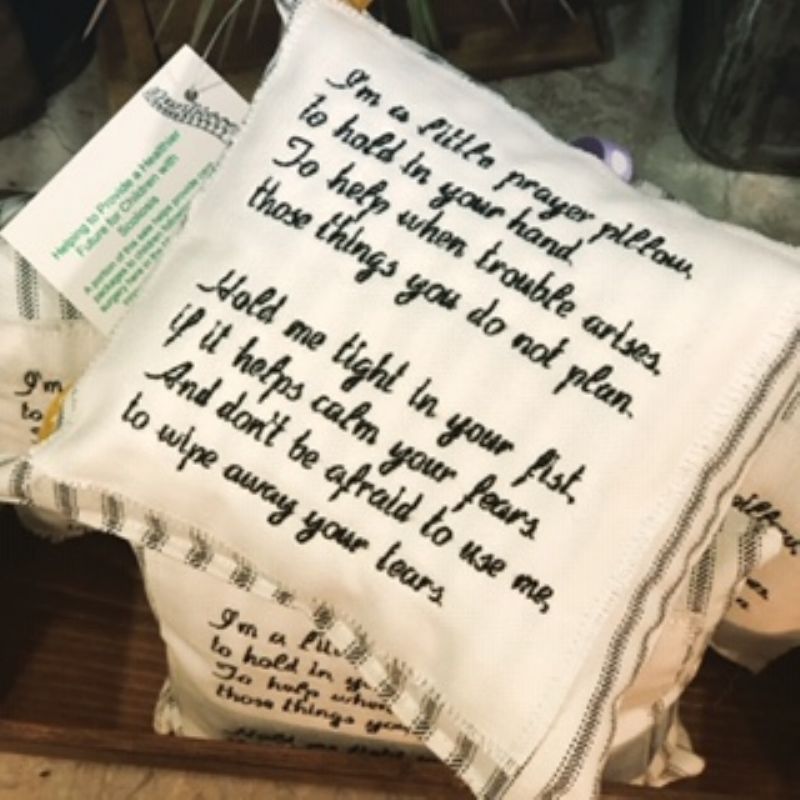 I'm a little prayer pillow,
to hold in your hand.
To help when trouble arises.
those things you do not plan.
Hold me tight in your fist,
if it helps calm your fears.
And don't be afraid to use me,
to wipe away your tears.
Helping to Provide a Healthier
Future for Children with
Scoliosis
I'm
to
I'm a
to hold in
To help when
those things you